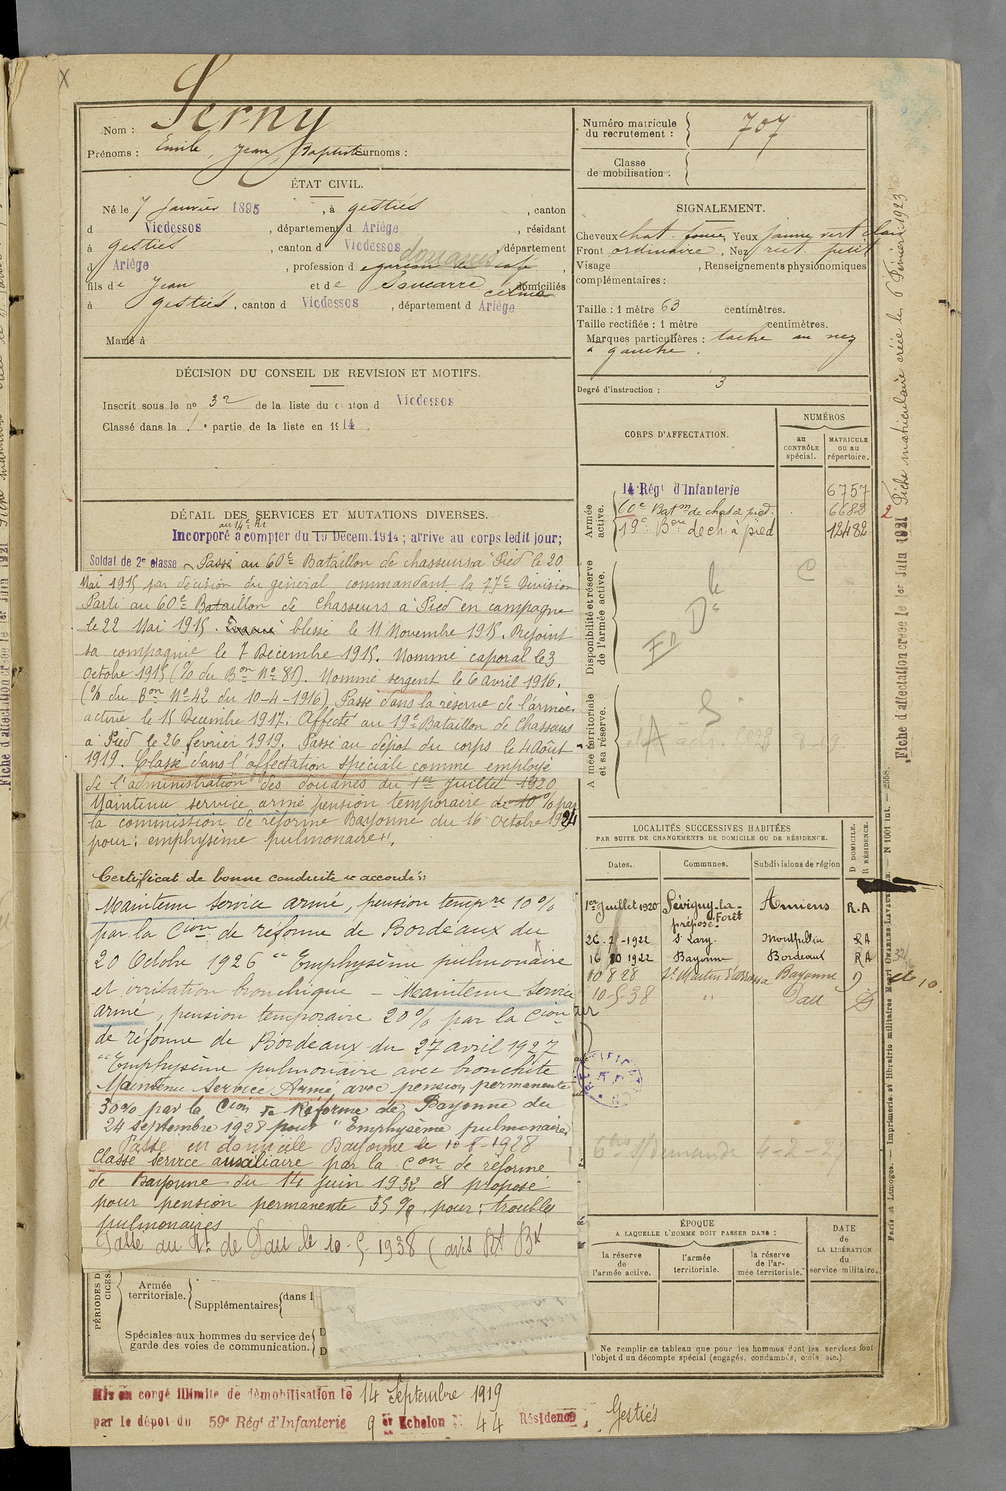 Serny
Nom :
Prénoms : Emile, Jean Baptiste surnoms :
ÉTAT CIVIL.
Né le 7 Janvier 1895, à gesties, canton
d Vicdessos, département d Ariège, résidant
à gesties, canton d Vicdessos département
douanes
d Ariège, profession d garçon de café,
fils de Jean et de Soucarre domiciliés
à gesties, canton d Vicdessos, département d Ariège
Marié à
DÉCISION DU CONSEIL DE REVISION ET MOTIFS.
Inscrit sous le no 32 de la liste du canton d Vicdessos
Classé dans la 1e partie de la liste en 1914
DÉTAIL DES SERVICES ET MUTATIONS DIVERSES.
au 14e RI
Incorporé à compter du 15 Décem. 1914 ; arrive au corps ledit jour ;
Soldat de 2e classe Passé au 60e Bataillon de chasseurs à Pied le 20
Mai 1915 par décision du général commandant la 77e Division
Parti au 60e Bataillon de Chasseurs à Pied en campagne
le 22 Mai 1915. blessé le 11 Novembre 1915. Rejoint
sa compagnie le 7 Décembre 1915. Nommé caporal le 3
Octobre 1915 (% du Bon No 87). Nommé sergent le 6 avril 1916.
(% du Bon No 42 du 10-4-1916) Passé dans la réserve de l'armée
active le 15 Décembre 1917. Affecté au 19e Bataillon de Chasseurs
à Pied le 26 février 1919. Passé au dépôt du corps le 4 Août
1919. Classé dans l'affectation spéciale comme employé
de l'administration des douanes du 1er Juillet 1920
Maintenu service armé pension temporaire de 10% par
la commission de réforme Bayonne du 16 octobre 1924
pour : emphysème pulmonaire".
Certificat de bonne conduite "accordé"
Maintenu Service armé, pension tempre 10%
par la Cion de réforme de Bordeaux du
20 Octobre 1926 "Emphysème pulmonaire
et irritation bronchique – Maintenu Service
armé, pension temporaire 20% par la Cion
de réforme de Bordeaux du 27 avril 1927
"Emphysème pulmonaire avec bronchite
Maintenu Service Armé avec pension permanente
30% par la Cion de Réforme de Bayonne du
24 septembre 1928 pour "Emphysème pulmonaire"
Passé en domicile Bayonne le 10-8-1928
Classé service auxiliaire par la Con de réforme
de Bayonne du 14 juin 1932 et proposé
pour pension permanente 35%, pour : troubles
pulmonaires
Passé au Rt de Pau le 10-5-1938 (avis Rt Bx
PÉRIODES D
CICES.
Armée
territoriale.
Supplémentaires dans l
Spéciales aux hommes du service de
garde des voies de communication.
D
D
Mis en congé illimité de démobilisation le 14 Septembre 1919
par le dépôt du 59e Régt d'Infanterie 9 er Echelon N 44 Résidence Gesties
Numéro matricule
du recrutement : 707
Classe
de mobilisation :
SIGNALEMENT.
Cheveux chat. Yeux jaune vert clair
Front ordinaire, Nez rect. petit
Visage , Renseignements physionomiques
complémentaires :
Taille : 1 mètre 63 centimètres.
Taille rectifiée : 1 mètre centimètres.
Marques particulières : tache au nez
à gauche.
Degré d'instruction : 3
CORPS D'AFFECTATION.
NUMÉROS
au
CONTRÔLE
spécial.
MATRICULE
ou au
répertoire.
Armée
active.
14 Régt d'Infanterie 6757
60e Batn de chas à pied. 6688
19e Bon de ch. à pied 12482
2
Disponibilité et réserve
de l'armée active.
C
Armée territoriale
et sa réserve.
LOCALITÉS SUCCESSIVES HABITÉES
PAR SUITE DE CHANGEMENTS DE DOMICILE OU DE RÉSIDENCE.
Dates. Communes. Subdivisions de région
D DOMICILE.
R RÉSIDENCE.
1er Juillet 1920 Sévigny-la-Forêt Amiens R.A
préposé
26-7-1922 St Lary. Montpellier RA
16 10 1922 Bayonne Bordeaux RA
10 8 28 St Martin Bayonne D
10-5-38 " Pau D
6 s/demande 4-2-2
ÉPOQUE
A LAQUELLE L'HOMME DOIT PASSER DANS :
la réserve
de
l'armée active.
l'armée
territoriale.
la réserve
de l'ar-
mée territoriale.
DATE
de
LA LIBÉRATION
du
service militaire.
Ne remplir ce tableau que pour les hommes dont les services font
l'objet d'un décompte spécial (engagés, condamnés, omis etc.).
Fiche d'affectation créée le 1er Juin 1921 Fiche matriculaire créée le 6 Février 1923
Paris et Limoges. — Imprimerie et librairie militaires Henri CHARLES-LAVAUZELLE. — N 1001 int. — 2358.
Fiche d'affectation créée le 1er Juin 1921